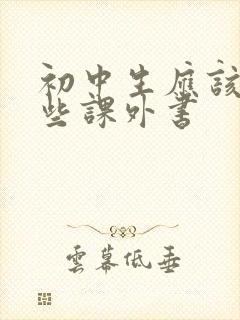 初中生應該
些課外書
雲幕低垂